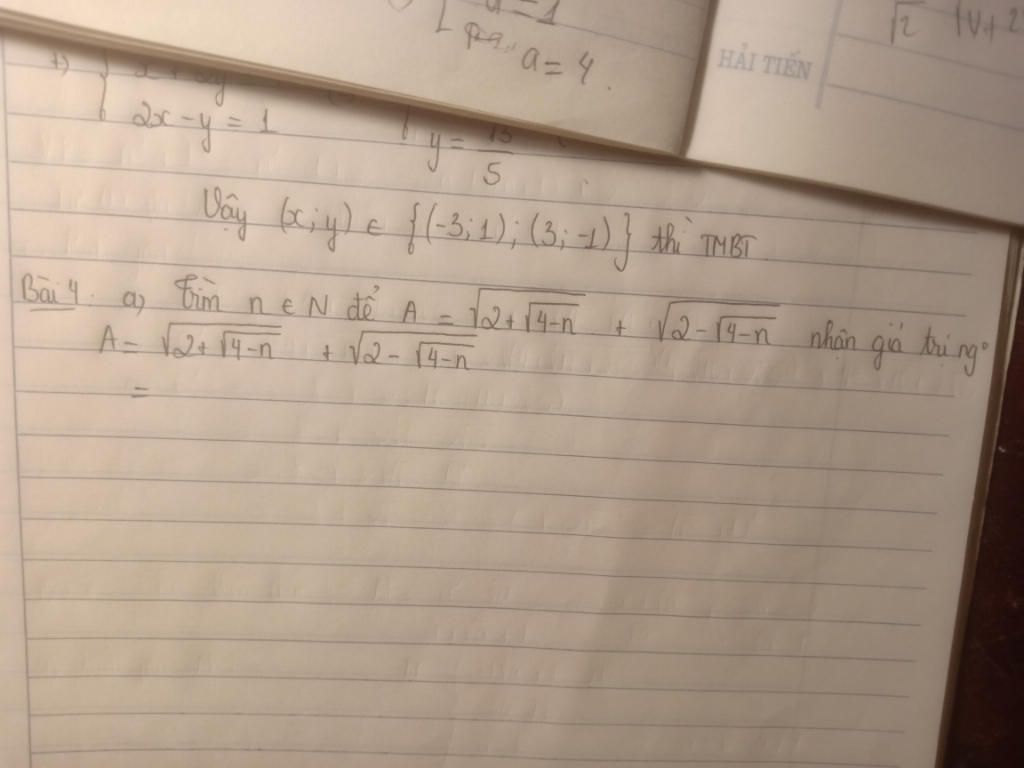 a = 4.
HẢI TIẾN
√2
2x - y = 1
y = /5
Vậy (x; y) ∈ {(-3; 1); (3; -1)} thì TMBT
Bài 4. a) Tìm n ∈ N để A = √(2 + √(4-n)) + √(2 - √(4-n)) nhận giá trị ng°
A = √(2 + √(4-n)) + √(2 - √(4-n))
=